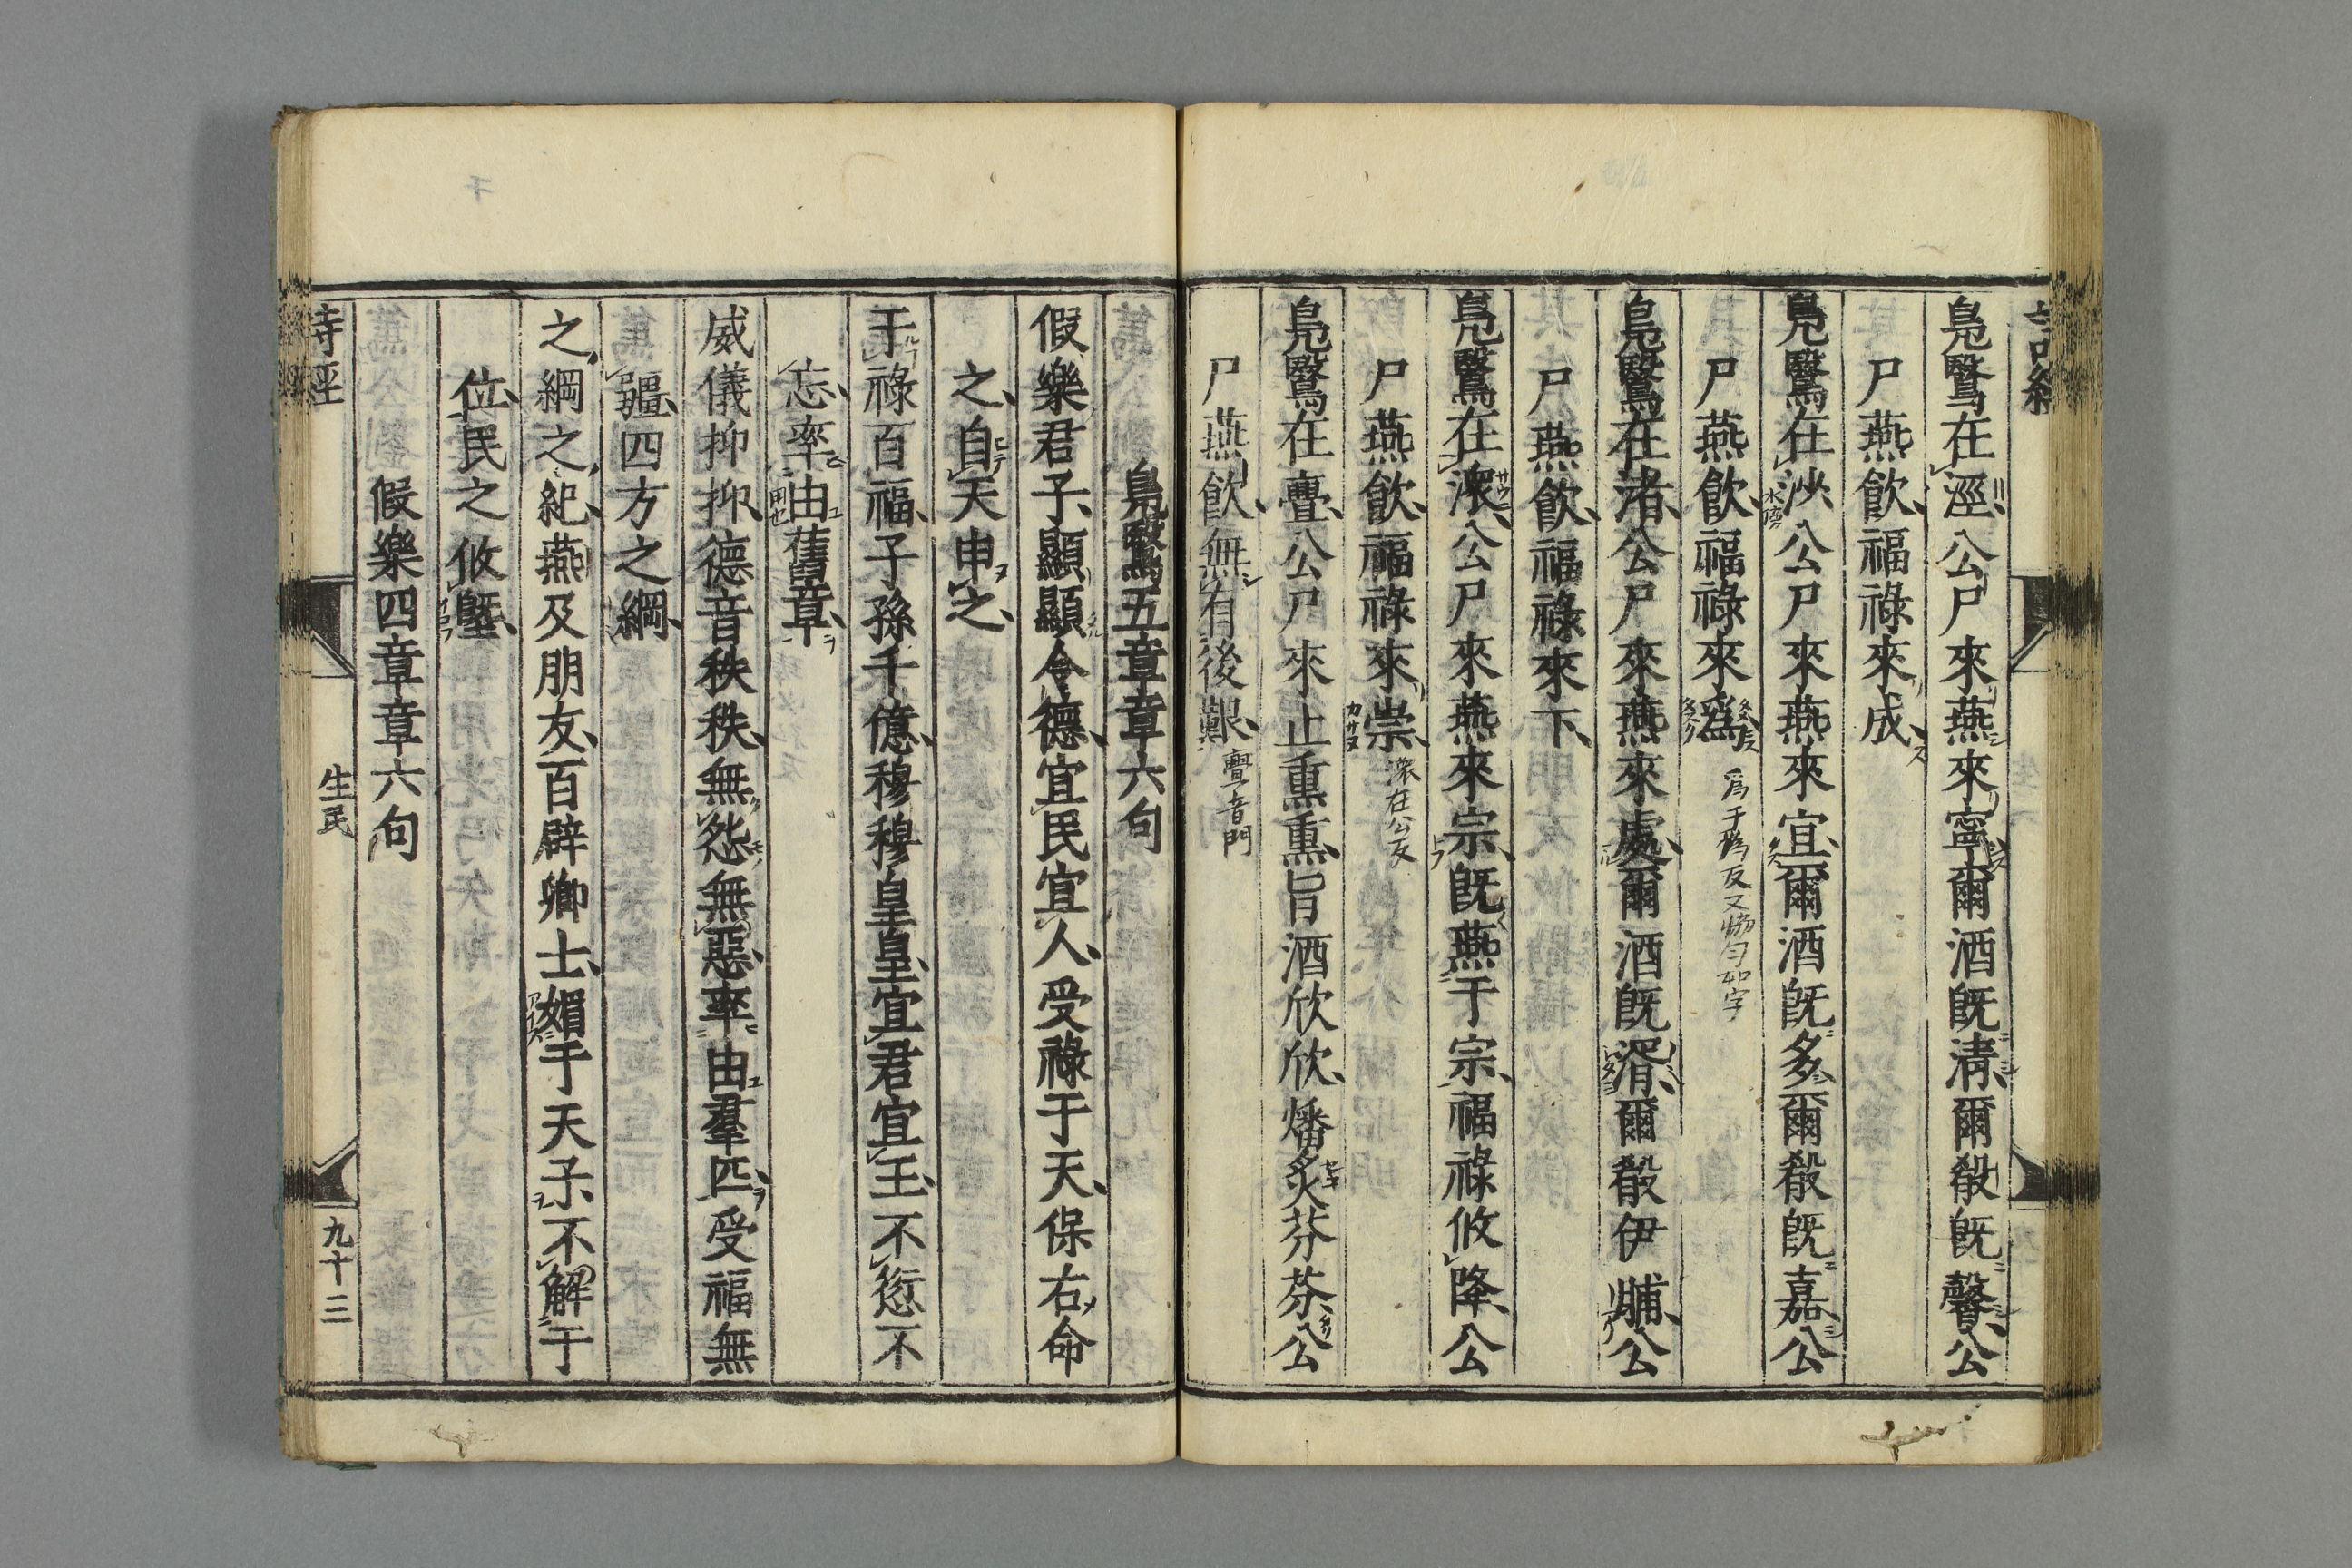 鳧鷖在涇公尸來燕來寧爾酒旣淸爾殽旣馨公
尸燕飮福祿來成
鳧鷖在沙公尸來燕來宜爾酒旣多爾殽旣嘉公
尸燕飮福祿來爲
鳧鷖在渚公尸來燕來處爾酒旣湑爾殽伊脯公
尸燕飮福祿來下
鳧鷖在潨公尸來燕來宗旣燕于宗福祿攸降公
尸燕飮福祿來崇 潨在公反
鳧鷖在亹公尸來止熏熏旨酒欣欣燔炙芬芬公
尸燕飮無有後艱 亹音門
鳧鷖五章章六句
假樂君子顯顯令德宜民宜人受祿于天保右命
之自天申之
于祿百福子孫千億穆穆皇皇宜君宜王不愆不
忘率由舊章
威儀抑抑德音秩秩無怨無惡率由羣匹受福無
疆四方之綱
之綱之紀燕及朋友百辟卿士媚于天子不解于
位民之攸墍
假樂四章章六句
詩經
生民
九十三